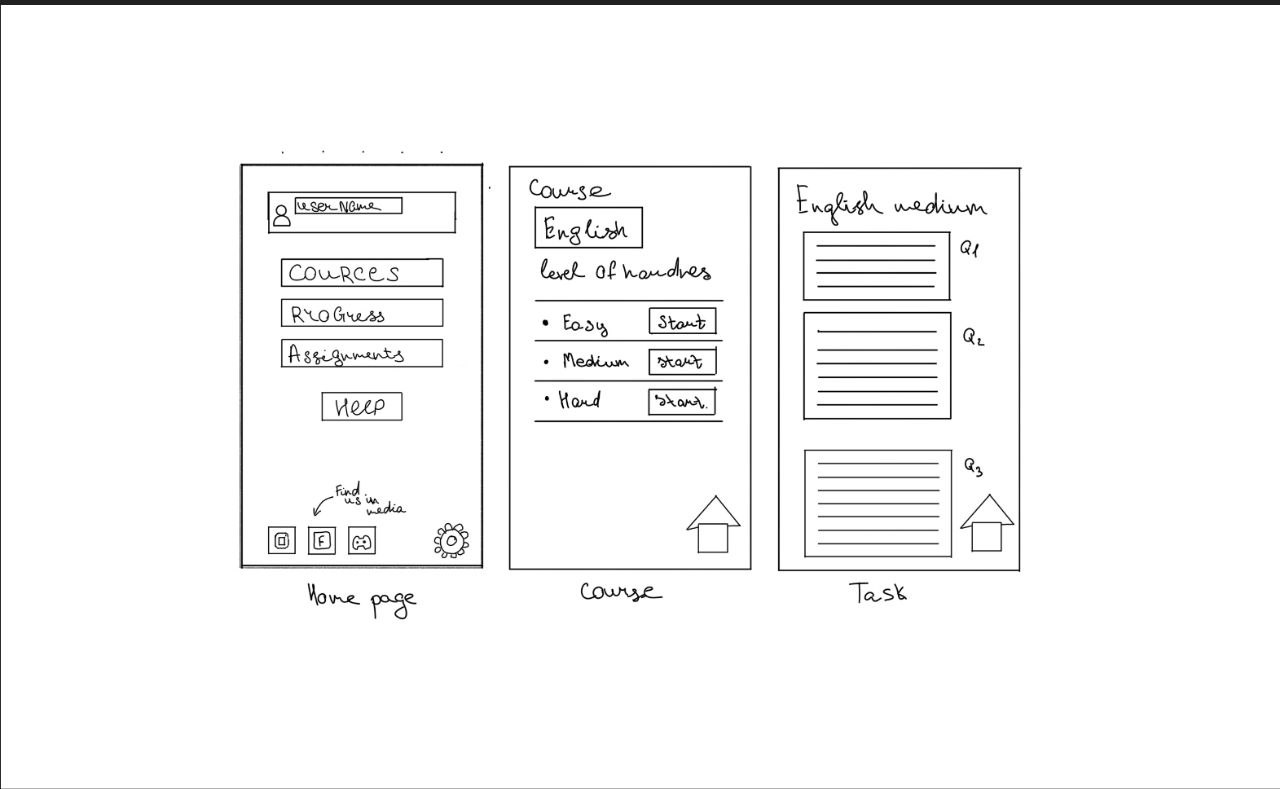 userName
COURCES
RroGress
Assignments
HELP
Find
us in
media
F
Home page
Course
English
level of hardnes
Easy
Start
Medium
Start
Hard
Start.
Course
English medium
Q1
Q2
Q3
Task